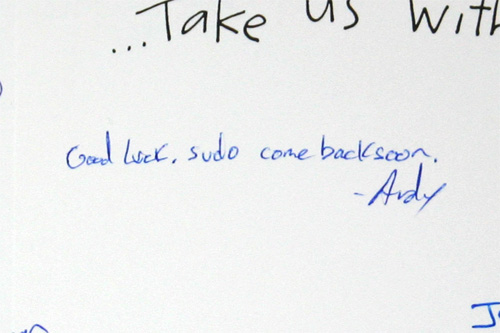 ...Take us with
Good luck, sudo come back soon.
-Andy